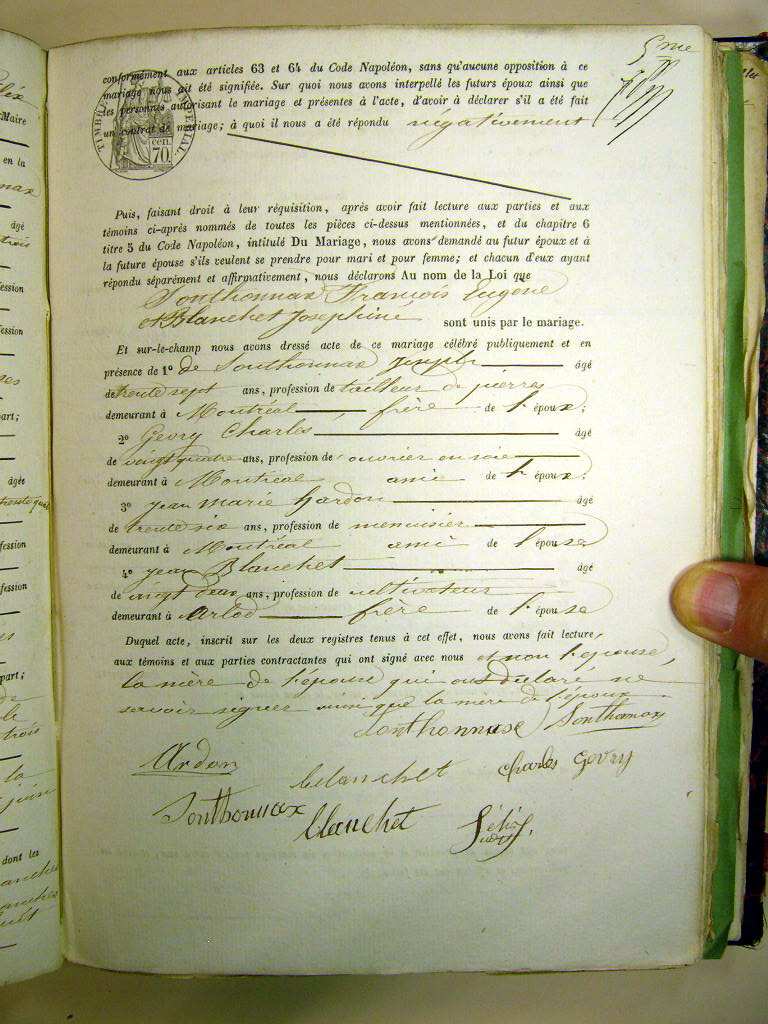 5me
conformément aux articles 63 et 64 du Code Napoléon, sans qu'aucune opposition à ce
mariage nous ait été signifiée. Sur quoi nous avons interpellé les futurs époux ainsi que
les personnes autorisant le mariage et présentes à l'acte, d'avoir à déclarer s'il a été fait
un contrat de mariage; à quoi il nous a été répondu négativement
TIMBRE
70.
cen.
Puis, faisant droit à leur réquisition, après avoir fait lecture aux parties et aux
témoins ci-après nommés de toutes les pièces ci-dessus mentionnées, et du chapitre 6
titre 5 du Code Napoléon, intitulé Du Mariage, nous avons demandé au futur époux et à
la future épouse s'ils veulent se prendre pour mari et pour femme; et chacun d'eux ayant
répondu séparément et affirmativement, nous déclarons Au nom de la Loi que
Sonthonnax François Eugène
et Blanchet Josephine sont unis par le mariage.
Et sur-le-champ nous avons dressé acte de ce mariage célébré publiquement et en
présence de 1o de Sonthonnax Joseph âgé
de trente sept ans, profession de tailleur de pierres
demeurant à Montréal frère de l'époux;
2o Gevry Charles âgé
de vingt quatre ans, profession de ouvrier en soie
demeurant à Montréal amie de l'époux;
3o Jean Marie hardon âgé
de trente six ans, profession de menuisier
demeurant à Montréal ami de l'épouse
4o Jean Blanchet âgé
de vingt deux ans, profession de cultivateur
demeurant à Arlod frère de l'épouse
Duquel acte, inscrit sur les deux registres tenus à cet effet, nous avons fait lecture,
aux témoins et aux parties contractantes qui ont signé avec nous et non l'épouse,
la mère de l'épouse qui ont déclaré ne
savoir signer ainsi que la mère de l'époux
Sonthonnaxe Sonthonax
Ardon blanchet Charles Gevry
Sonthonnax blanchet